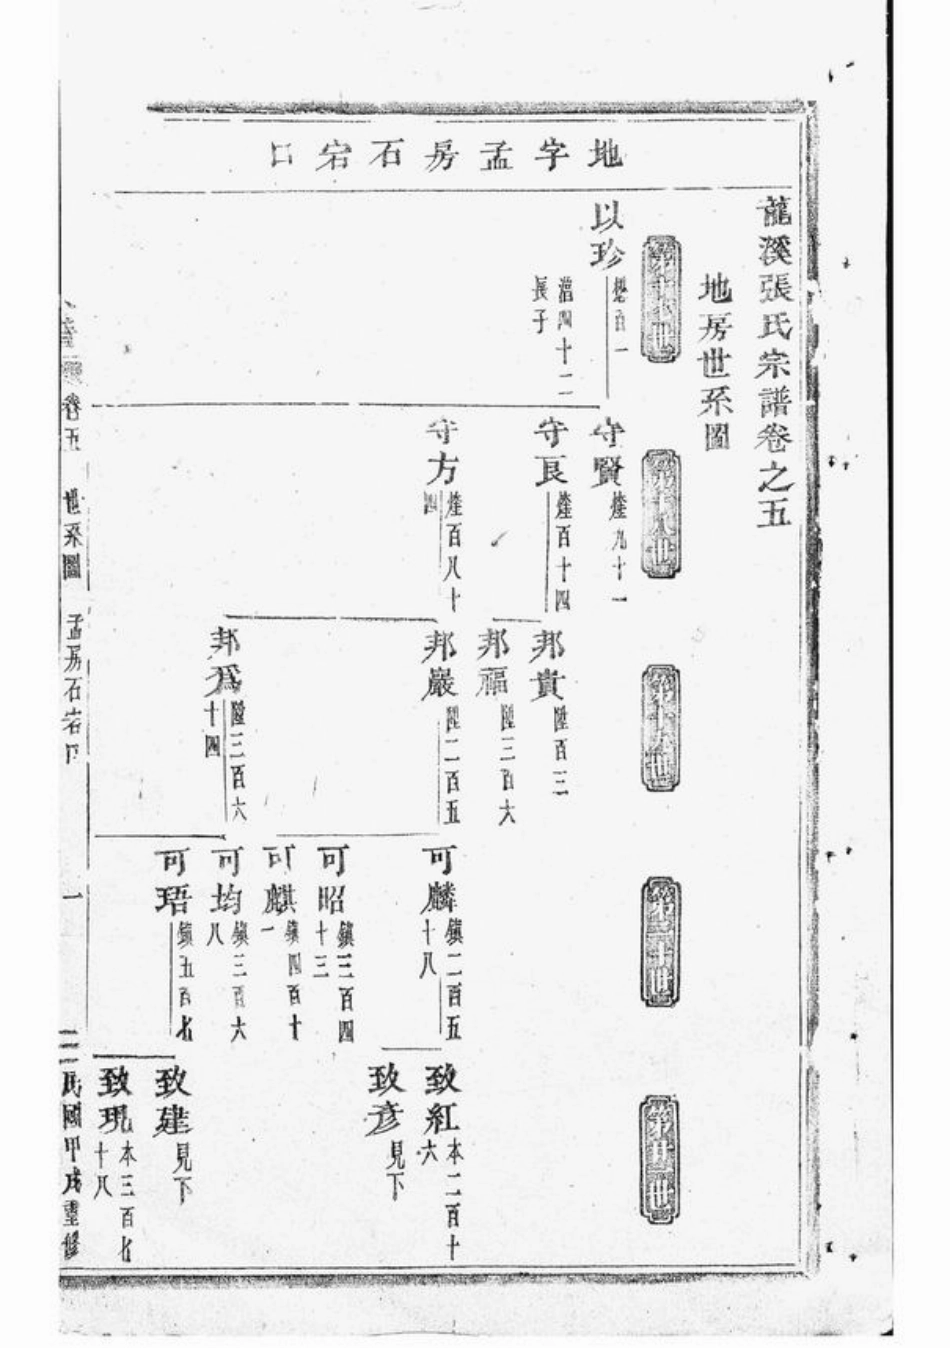 龍溪張氏宗譜卷之五
地房世系圖
地字孟房石宕口
第十七世
第十八世
第十九世
第二十世
第廿一世
以珍
百一
四十二
長子
守賢
九十一
守良
百十四
守方
百八十
四
邦貴
陞百三
邦福
陞三百六
邦巖
陞二百五
邦為
陞三百六
十四
可麟
鎮二百五
十八
可昭
鎮三百四
十三
可麒
鎮四百十
一
可均
鎮三百六
八
可珸
鎮五百九
致紅
本二百十
六
致彥
見下
致建
見下
致現
本三百九
十八
卷五
世系圖
孟房石宕口
一
民國甲戌重修